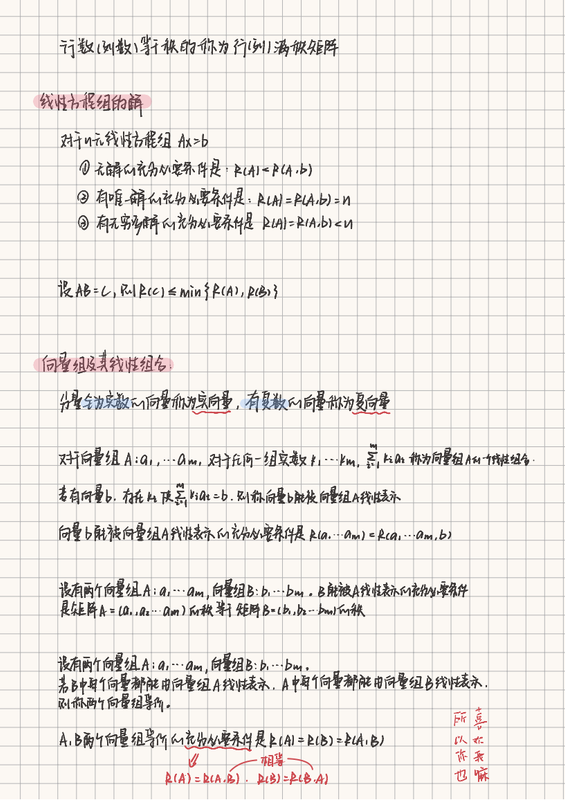 行数(列数)等于秩的称为行(列)满秩矩阵
线性方程组的解
对于n元线性方程组 Ax=b
① 无解的充分必要条件是: R(A)<R(A,b)
② 有唯一解的充分必要条件是: R(A)=R(A,b)=n
③ 有无穷多解的充分必要条件是 R(A)=R(A,b)<n
设AB=C, 则R(C)≤min{R(A),R(B)}
向量组及其线性组合.
分量全为实数的向量称为实向量, 有复数的向量称为复向量
对于向量组A: a₁,…am, 对于任何一组实数 k₁…km, Σᵐᵢ₌₁ kᵢaᵢ 称为向量组A的一个线性组合.
若有向量b, 存在kᵢ使 Σᵐᵢ₌₁ kᵢaᵢ=b. 则称向量b能被向量组A线性表示
向量b能被向量组A线性表示的充分必要条件是 R(a₁…am)=R(a₁…am,b)
设有两个向量组A: a₁…am, 向量组B: b₁…bm. B能被A线性表示的充分必要条件
是矩阵A=(a₁,a₂…am)的秩等于矩阵B=(b₁,b₂…bm)的秩
设有两个向量组A: a₁,…am, 向量组B: b₁…bm.
若B中每个向量都能由向量组A线性表示. A中每个向量都能由向量组B线性表示.
则称两个向量组等价.
A,B两个向量组等价的充分必要条件是R(A)=R(B)=R(A,B)
相等
R(A)=R(A,B). R(B)=R(B,A)
所以你也
喜欢我嘛